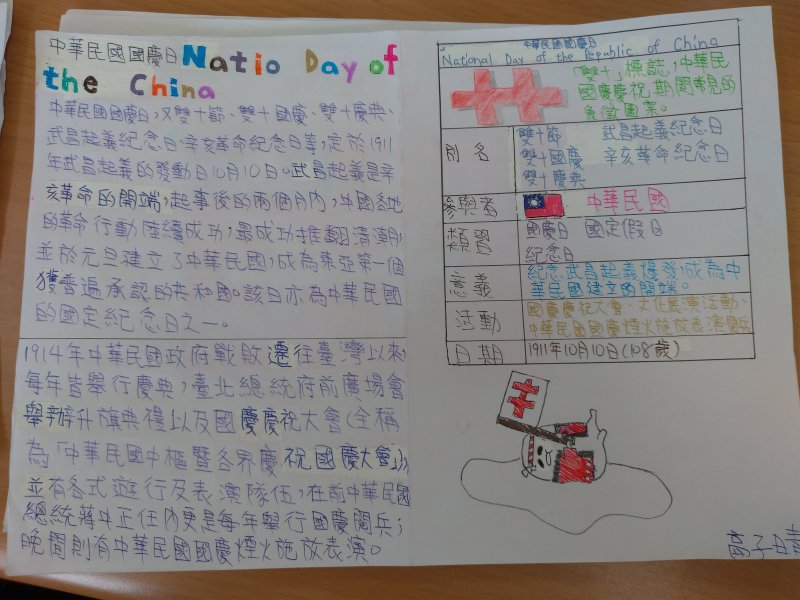 中華民國國慶日 Natio Day of
the China
中華民國國慶日,又雙十節、雙十國慶、雙十慶典、
武昌起義紀念日、辛亥革命紀念日等,定於1911
年武昌起義的發動日10月10日。武昌起義是辛
亥革命的開端,起事後的兩個月內,中國各地
的革命行動陸續成功,最成功推翻清朝,
並於元旦建立了中華民國,成為東亞第一個
獲普遍承認的共和國。該日亦為中華民國
的國定紀念日之一。
1914年中華民國政府戰敗遷往臺灣以來,
每年皆舉行慶典,臺北總統府前廣場會
舉辦升旗典禮以及國慶慶祝大會(全稱
為「中華民國中樞暨各界慶祝國慶大會」),
並有各式遊行及表演隊伍,在前中華民國
總統蔣中正任內更是每年舉行國慶閱兵;
晚間則有中華民國國慶煙火施放表演。
中華民國國慶日
National Day of the Republic of China
「雙十」標誌,中華民
國國慶慶祝期間常見的
象徵圖案。
別名
雙十節 武昌起義紀念日
雙十國慶 辛亥革命紀念日
雙十慶典
參與者 中華民國
類型 國慶日 國定假日
紀念日
意義 紀念武昌起義爆發,成為中
華民國建立的開端。
活動 國慶慶祝大會、文化展演活動、
中華民國國慶煙火施放表演閱兵
日期 1911年10月10日(108歲)